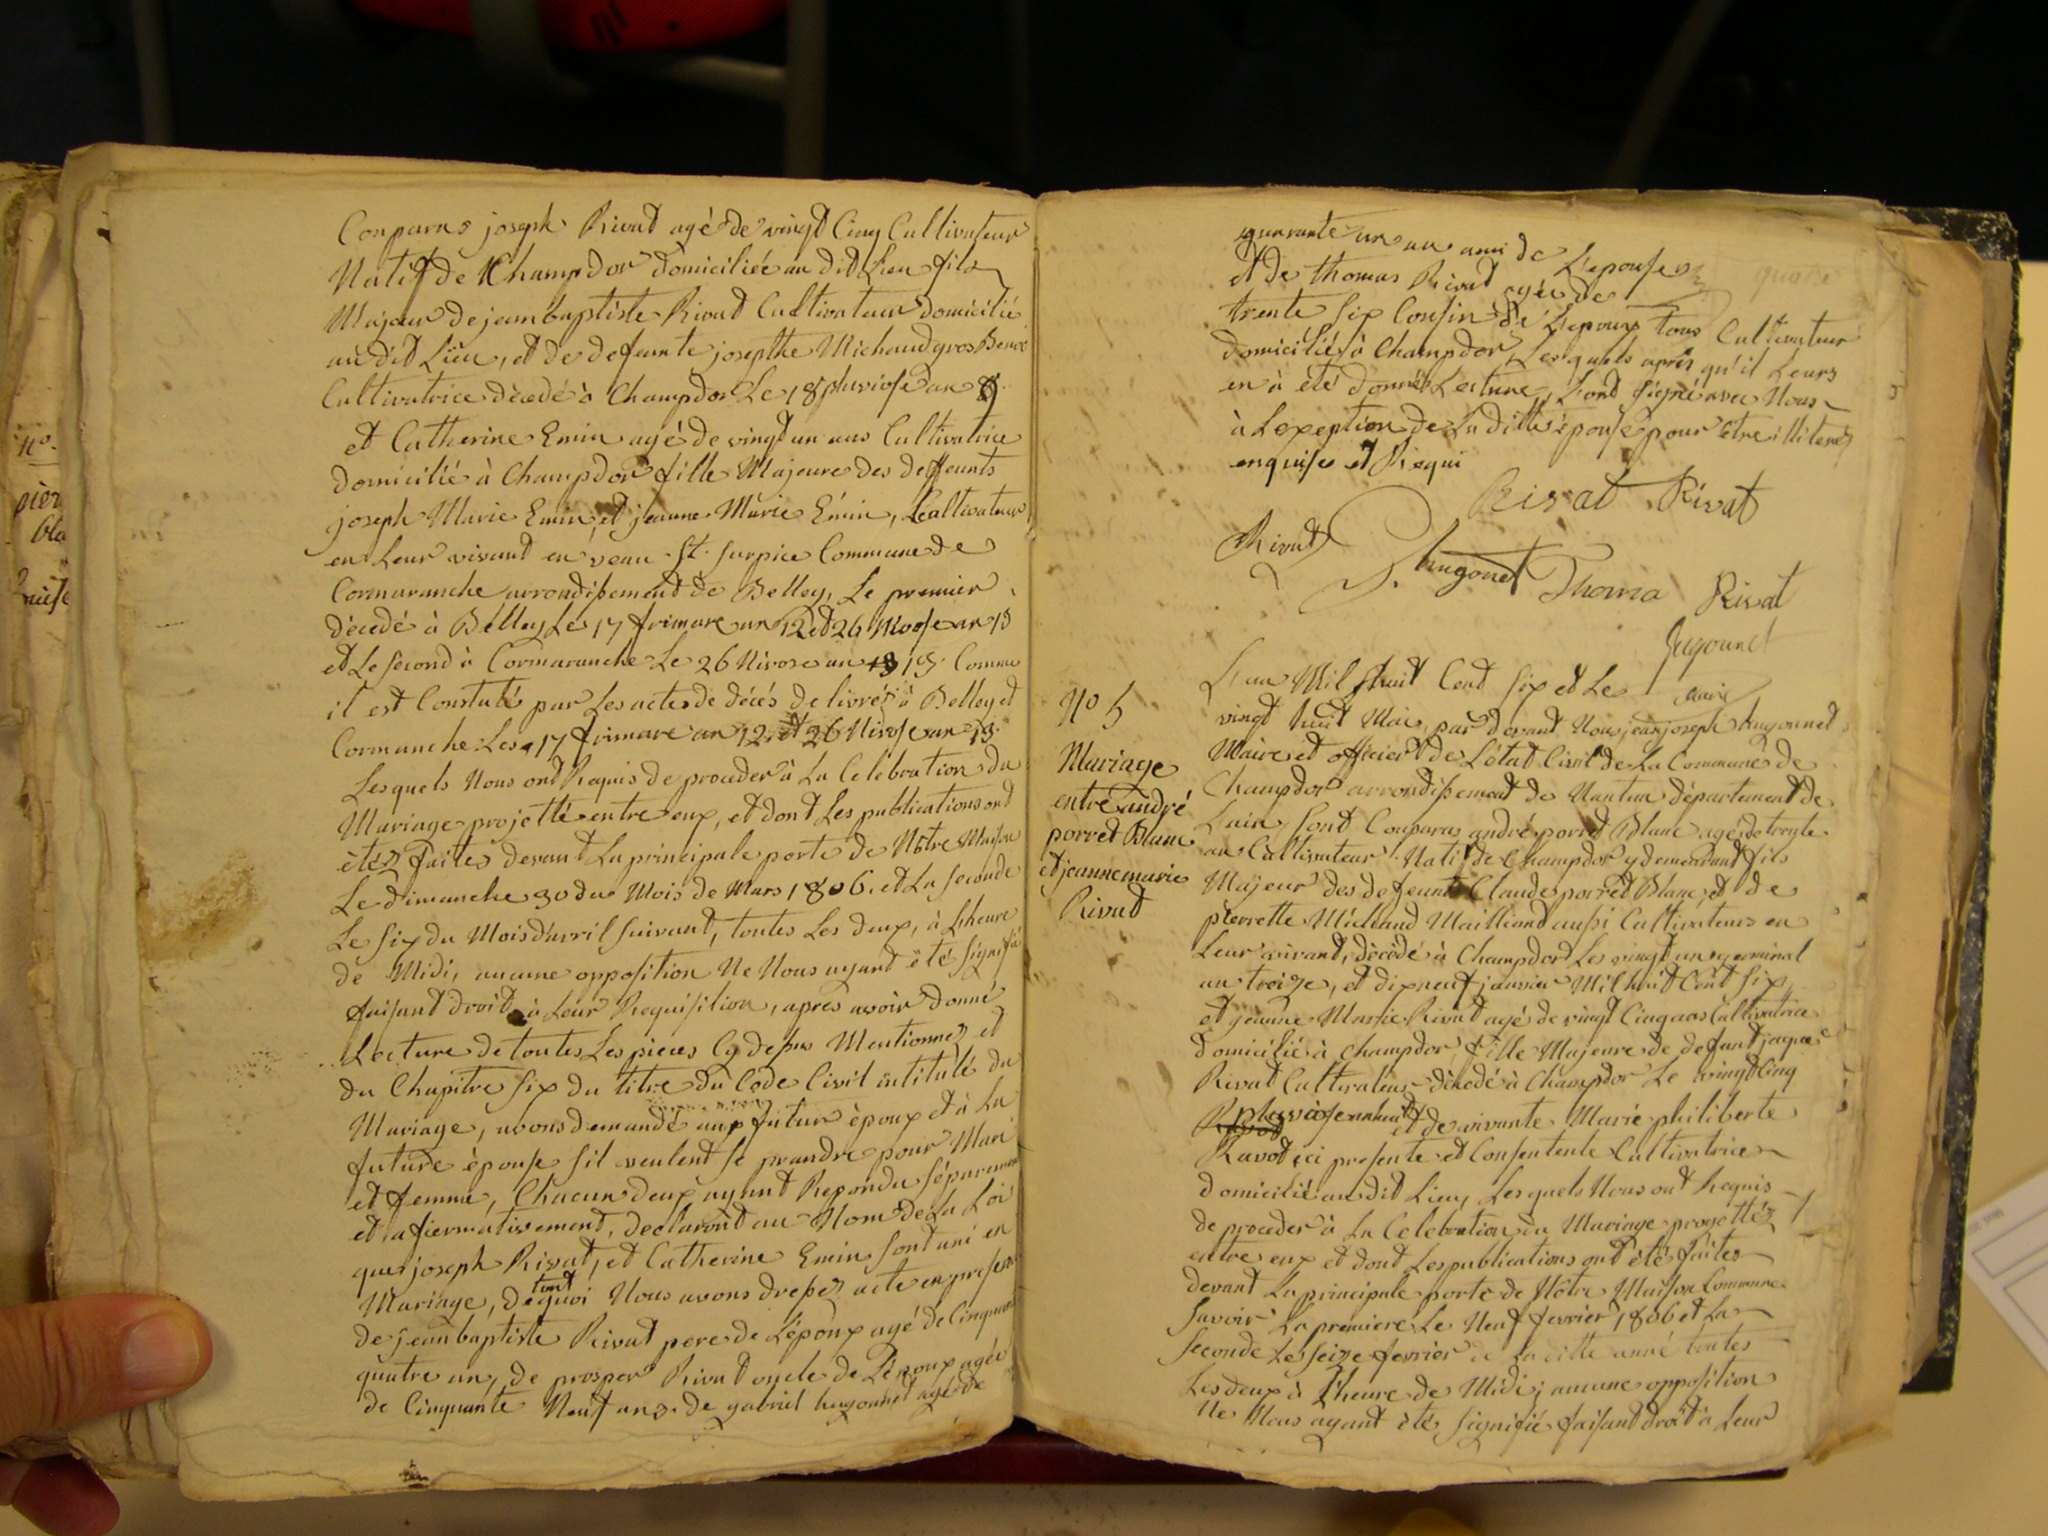 Comparus joseph Rivat agé de vingt Cinq Cultivateur
Natif de Champdor domiciliée au dit Lieu fils
Majeur de jeanbaptiste Rivat Cultivateur domicilié
au dit Lieu, et de defeunte josephte Michaud gros Benoit
Cultivatrice dècedé à Champdor Le 18 pluviose an 9
et Catherine Emin agé de vingt un ans Cultivatrice
domicilié à Champdor fille Majeure des deffeunts
joseph Marie Emin, et jeanne Marie Emin, Cultivateurs
en Leur vivant en veau St. surpice Commune de
Cormaranche arrondissement de Belley, Le premier
décedé à Belley Le 17 frimare an 12 et 26 Nivose an 13
et Le second à Cormaranche Le 26 Nivose an 13 Comme
il est Constaté par Les actes de décés delivrés à Belley et
Cormanche Les 17 frimare an 12 et 26 Nivose an 13.
Lesquels Nous ont Requis de proceder à La Celébration du
Mariage projetté entre eux, et dont Les publications ont
étéz faites devant La principale porte de Nôtre Maison
Le dimanche 30 du Mois de Mars 1806. et La seconde
Le six du Mois d'avril suivant, toutes Les deux, à Lheure
de Midi, aucune opposition Ne Nous ayant été signifié
faisant droit à Leur Requisition, apres avoir donné
Lecture de toutes Les pieces Cy dessus Mentionnez et
du Chapitre six du titre du Code Civil intitulé du
Mariage, avons demandé aux futur èpoux et à La
future èpouse sil veulent se prandre pour Mari
et femme, Chacun deux ayant Repondu séparement
et afiermativement, declaront au Nom de La Loi
que joseph Rivat, et Catherine Emin sont uni en
Mariage, de tout quoi Nous avons dressez acte en presence
de jeanbaptiste Rivat pere de L'époux agé de Cinquante
quatre an, de prosper Rivat oncle de L'époux agée
de Cinquante Neuf ans. de gabriel hugonnet agé de
quarante un an ami de L'epouse
et de thomas Rivat agée de
trente six Cousin de L'epoux tous Cultivateur
domiciliés à Champdor, Lesquels après qu'il Leurs
en à été donné Lecture, L'ont signé avec Nous
à Lexeption de La ditte épouse pour être illiteré
enquise et Requi
Rivat Rivat
Rivat
J. hugonet Thoma Rivat
hugounet
maire
L'an Mil huit Cent six et Le
vingt huit Mai, par devant Nous jean joseph hugonnet
Maire et officiert de L'état Civil de La Commune de
Champdor arrondissement de Nantua département de
Lain, sont Comparus andré porret Blanc agé de trente
an Cultivateur Natif de Champdor y demeurant fils
Majeur des defeunts Claude porret Blanc, et de
pierrette Michaud Mailliand aussi Cultivateurs en
Leur vivant, dècèdé à Champdor Les vingt un germinal
an treize, et dix neuf janvier Mil huit Cent six
et jeanne Marie Rivat agé de vingt Cinq ans Cultivatrice
domicilié à Champdor, fille Majeure de defunt jaques
Rivat Cultivateur dècedé à Champdor Le vingt Cinq
pluviose an huit et de vivante Marie philiberte
Ravot ici presente et Consentente Cultivatrice
domicilié au dit Lieu, Lesquels Nous ont Requis
de proceder à La Celebration du Mariage progettéz
entre eux et dont Les publications ont été faites
devant La principale porte de Nôtre Maison Commune
Savoir La premiere Le Neuf fevrier 1806 et La
Seconde Le seize fevrier de La ditte anné toutes
Les deux à Lheure de Midi, aucune opposition
Ne Nous ayant été signifié faisant droit à Leur
No 5
Mariage
entre andré
porret Blanc
et jeanne marie
Rivat